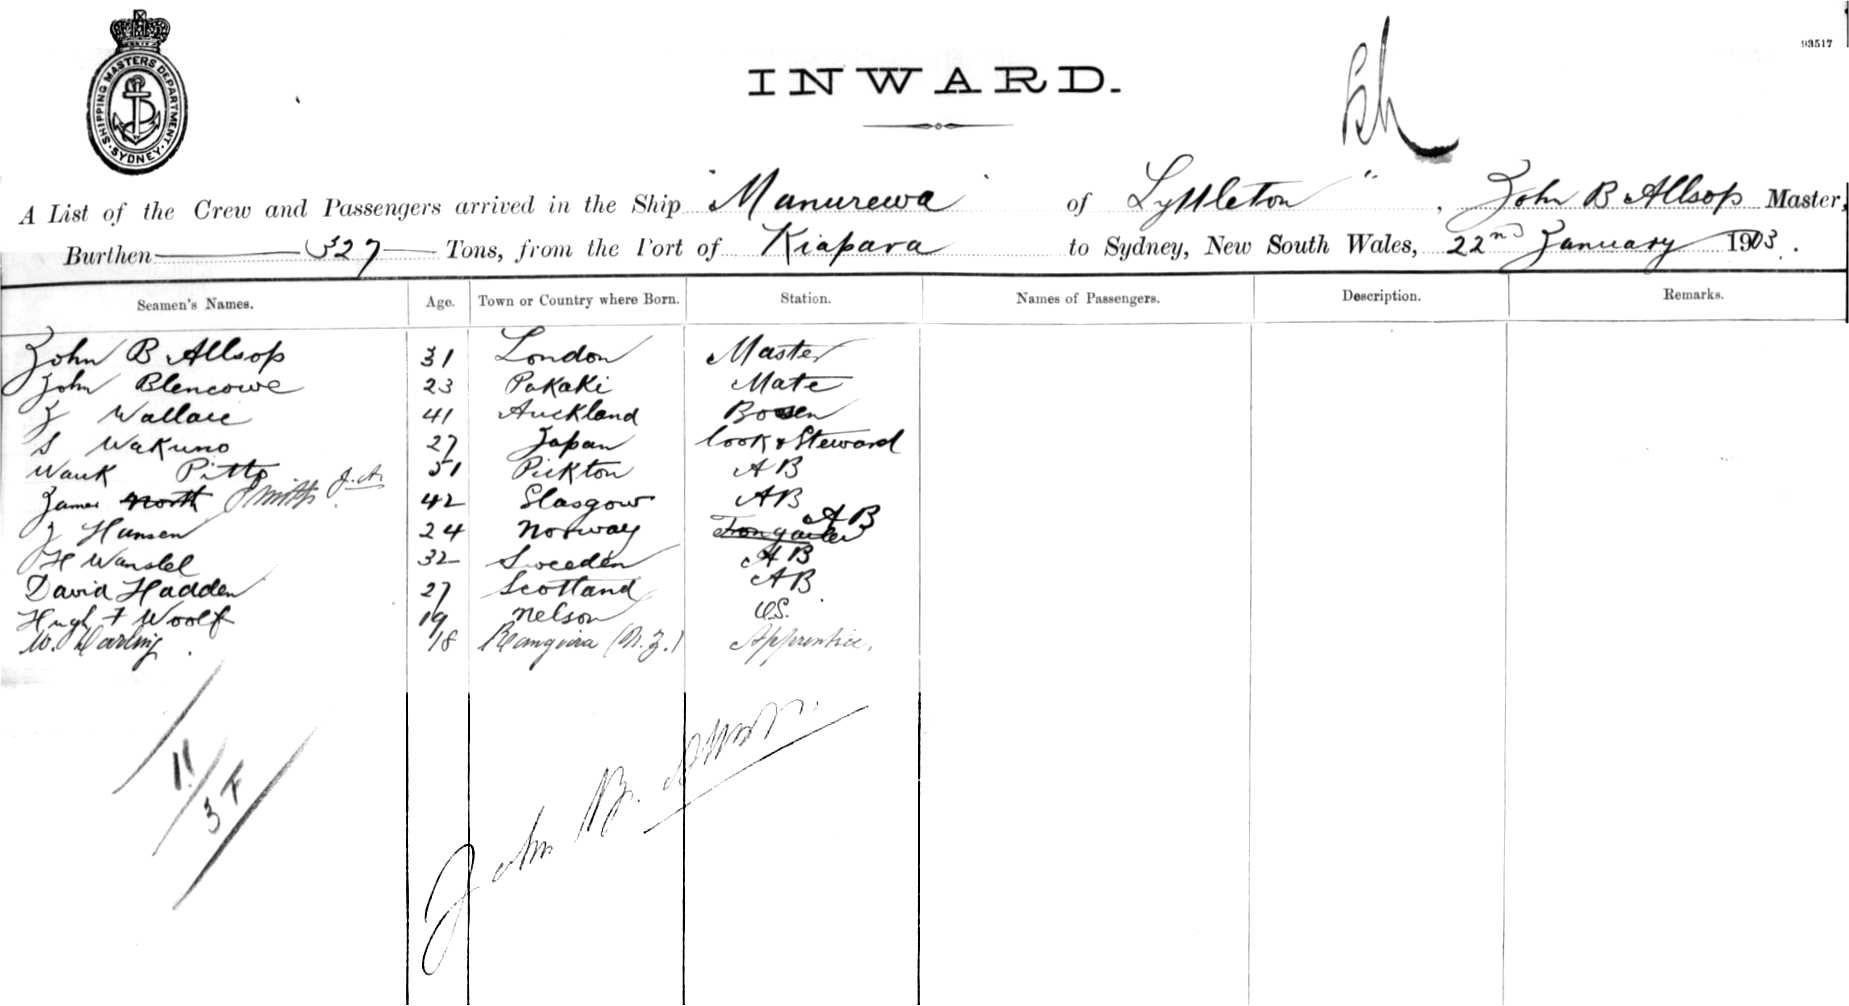 93517
SHIPPING MASTERS DEPARTMENT. SYDNEY.
INWARD.
A List of the Crew and Passengers arrived in the Ship "Manurewa" of Lyttleton", John B Allsop Master,
Burthen 327 Tons, from the Port of Kiapara to Sydney, New South Wales, 22nd January 1903.
Seamen's Names. Age. Town or Country where Born. Station. Names of Passengers. Description. Remarks.
John B Allsop 31 London Master
John Blencowe 23 Pukaki Mate
J Wallace 41 Auckland Bosen
S Wakuno 27 Japan Cook & Steward
Wauk Pitto 51 Pickton AB
James North Smith J.A. 42 Glasgow AB
J Hansen 24 Norway AB
H Wanslel 32 Sweeden AB
David Hadden 27 Scotland AB
Hugh F Woolf 19 Nelson O.S.
W. Darling 18 (N.Z.) Apprentice.
11
3 F
John B. Allsop